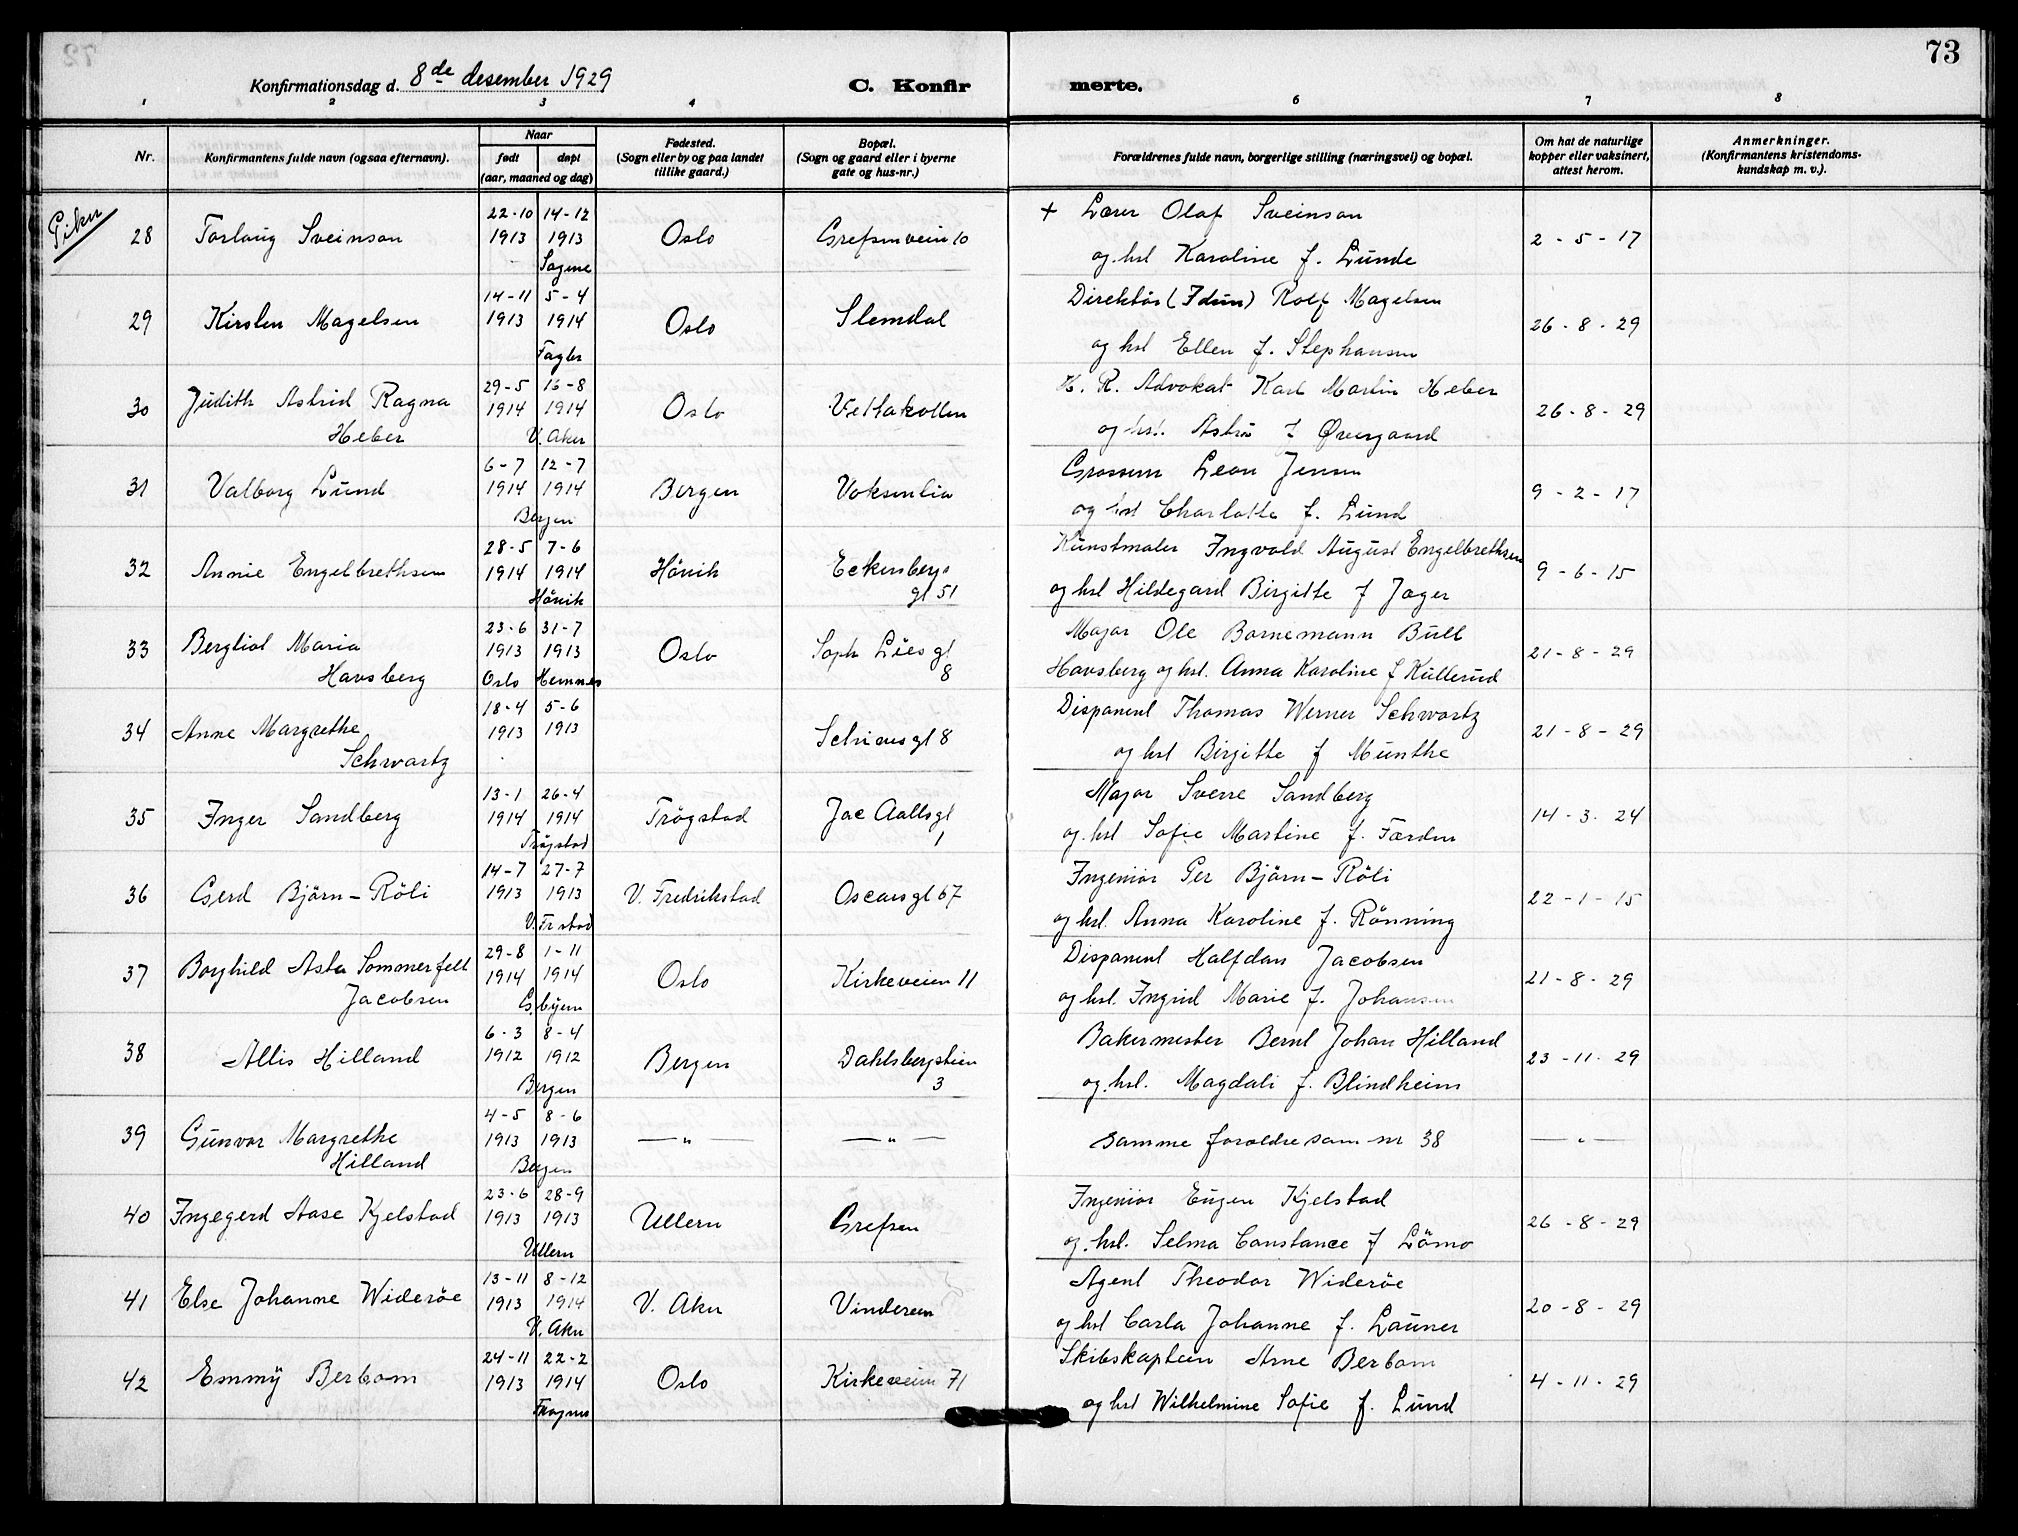 73
Konfirmationsdag d. 8de desember 1929
C. Konfir merte.
1 2 3 4 6 7 8
Nr. | Konfirmantens fulde navn (ogsaa efternavn). | Naar født døpt (aar, maaned og dag) | Fødested. (Sogn eller by og paa landet tillike gaard.) | Bopæl. (Sogn og gaard eller i byerne gate og hus-nr.) | Forældrenes fulde navn, borgerlige stilling (næringsvei) og bopæl. | Om hat de naturlige kopper eller vaksinert, attest herom. | Anmerkninger. (Konfirmantens kristendoms-kundskap m. v.).
Piker
28 Torlaug Sveinson 22-10 1913 14-12 1913 Sagene Oslo Grefsenveien 10 + Lærer Olaf Sveinson
og hst Karoline f. Lunde 2-5-17
29 Kirsten Magelsen 14-11 1913 5-4 1914 Oslo Slemdal Direktör (Idun) Rolf Magelsen
og hst Ellen f. Stephansen 26-8-29
30 Judith Astrid Ragna Heber 29-5 1914 16-8 1914 V. Aker Oslo Vettakollen H. R. Advokat Karl Martin Heber
og hst. f Övergaard 26-8-29
31 Valborg Lund 6-7 1914 12-7 1914 Bergen Bergen Voksenlia Grosserer Leon Jensen
og hst Charlotte f. Lund 9-2-17
32 Annie Engelbrethsen 28-5 1914 7-6 1914 Hövik Hövik Eckersbergs gt 51 Kunstmaler Ingvald August Engelbrethsen
og hst Hildegard Birgitte f Jæger 9-6-15
33 Bergliot Maria Havsberg 23-6 1913 31-7 1913 Oslo Hemnes Oslo Soph Lies gt 8 Major Ole Bornemann Bull
Havsberg og hst. Anna Karoline f Kullerud 21-8-29
34 Anne Margrethe Schwartz 18-4 1913 5-6 1913 Schives gt 8 Disponent Thomas Werner Schwartz
og hst Birgitte f Munthe 21-8-29
35 Inger Sandberg 13-1 1914 26-4 1914 Trögstad Trögstad Jac Aalls gt 1 Major Sverre Sandberg
og hst Sofie Martine f. Færden 14-3-24
36 Gerd Björn-Röli 14-7 1913 27-7 1913 V. Frstad V. Fredrikstad Oscars gt 67 Ingeniör Per Björn-Röli
og hst. Anna Karoline f. Rönning 22-1-15
37 Borghild Asta Sommerfelt Jacobsen 29-8 1914 1-11 1914 G.byen Oslo Kirkeveien 11 Disponent Halfdan Jacobsen
og hst. Ingrid Marie f. Johansen 21-8-29
38 Allis Hilland 6-3 1912 8-4 1912 Bergen Bergen Dahlsbergstien 3 Bakermester Bernt Johan Hilland
og hst. Magdali f. Blindheim 23-11-29
39 Gunvor Margrethe Hilland 4-5 1913 8-6 1913 Bergen —"— —"— samme foreldre som nr 38 —"—
40 Ingegerd Aase Kjelstad 23-6 1913 28-9 1913 Ullern Ullern Grefsen Ingeniör Eugen Kjelstad
og hst. Selma Constance f Lömo 26-8-29
41 Else Johanne Wideröe 13-11 1913 8-12 1914 V. Aker V. Aker Vinderen Agent Theodor Wideröe
og hst Carla Johanne f. Launer 20-8-29
42 Emmy Berbom 24-11 1913 22-2 1914 Frogner Oslo Kirkeveien 71 Skibskaptein Arne Berbom
og hst Wilhelmine Sofie f. Lund 4-11-29